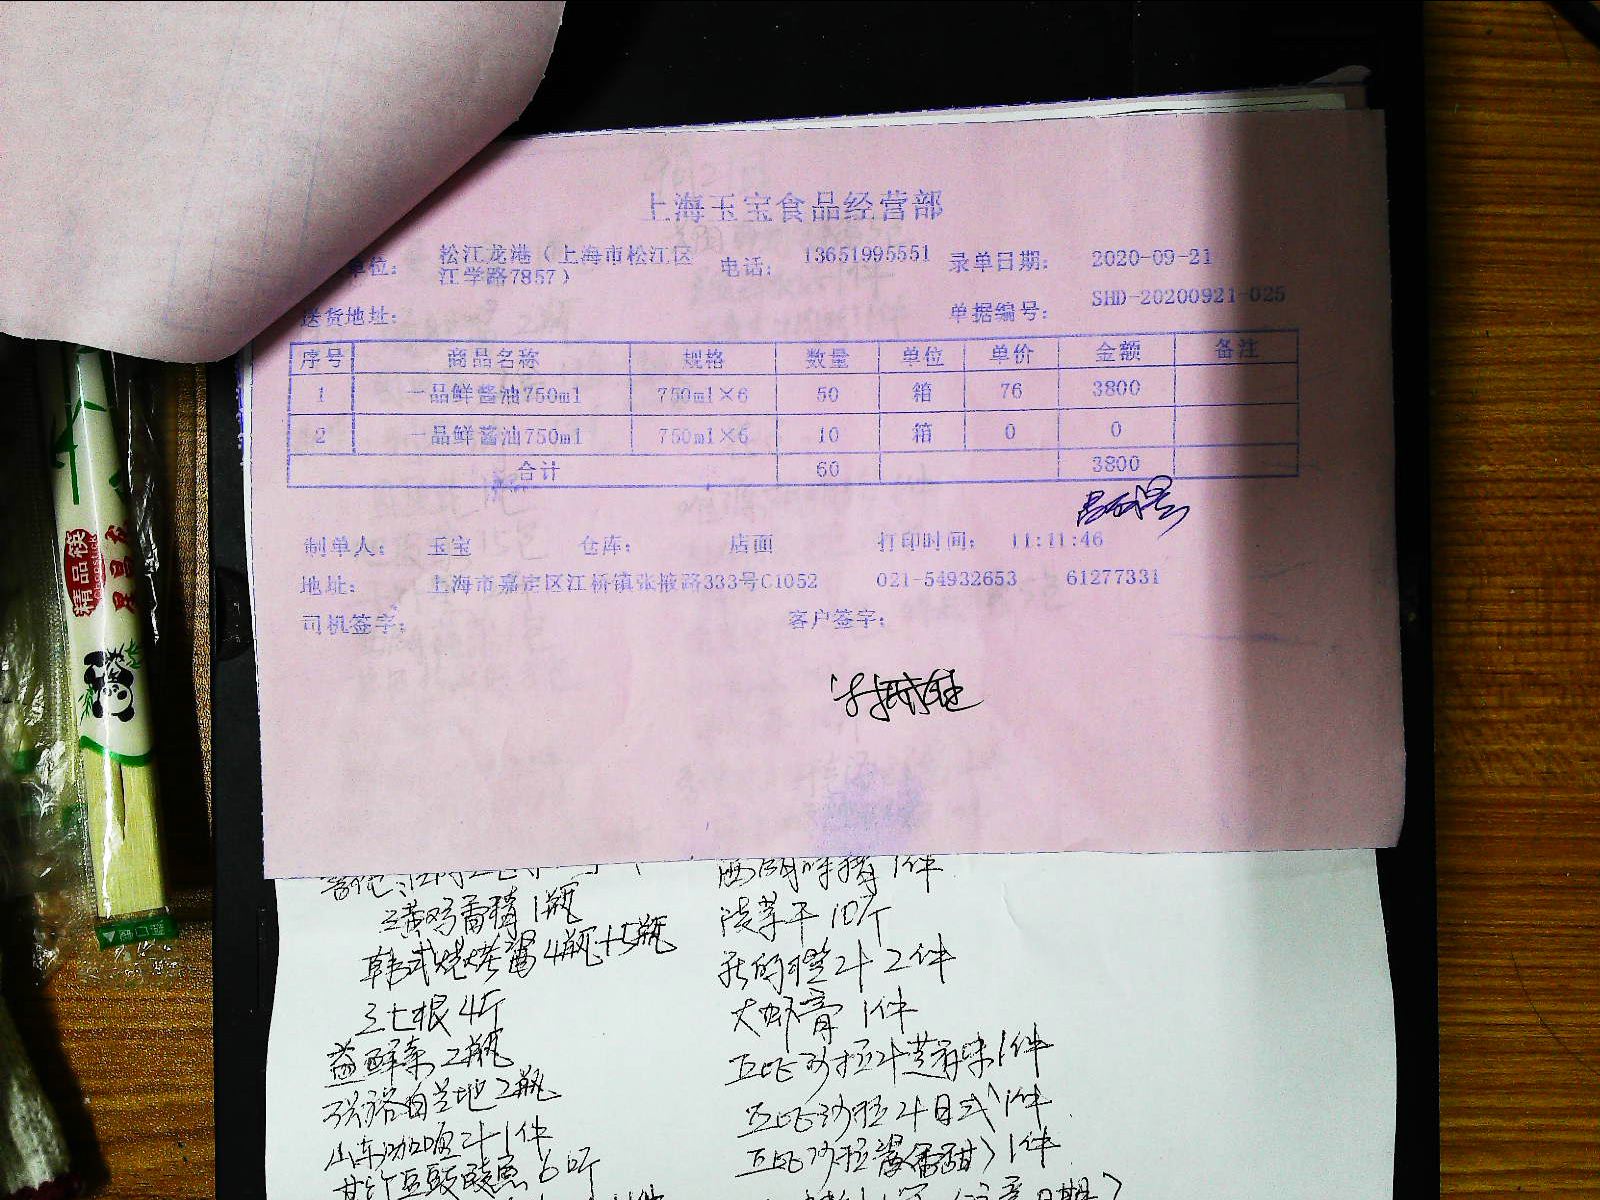 上海玉宝食品经营部
单位: 松江龙港（上海市松江区江学路7857） 电话: 13651995551 录单日期: 2020-09-21
送货地址: 单据编号: SHD-20200921-025
序号 商品名称 规格 数量 单位 单价 金额 备注
1 一品鲜酱油750ml 750ml×6 50 箱 76 3800
2 一品鲜酱油750ml 750ml×6 10 箱 0 0
合计 60 3800
制单人: 玉宝 仓库: 店面 打印时间: 11:11:46
地址: 上海市嘉定区江桥镇张掖路333号C1052 021-54932653 61277331
司机签字: 客户签字:
1件
1瓶 10斤
韩式烧烤酱4瓶+5瓶 2件
三七根4斤 大虾膏 1件
益鲜素2瓶 丘比沙拉汁芝麻味1件
2瓶 丘比沙拉汁日式1件
山东咖喱汁1件 丘比沙拉酱(香甜)1件
豆豉鲮鱼6听
精品筷
Chopsticks